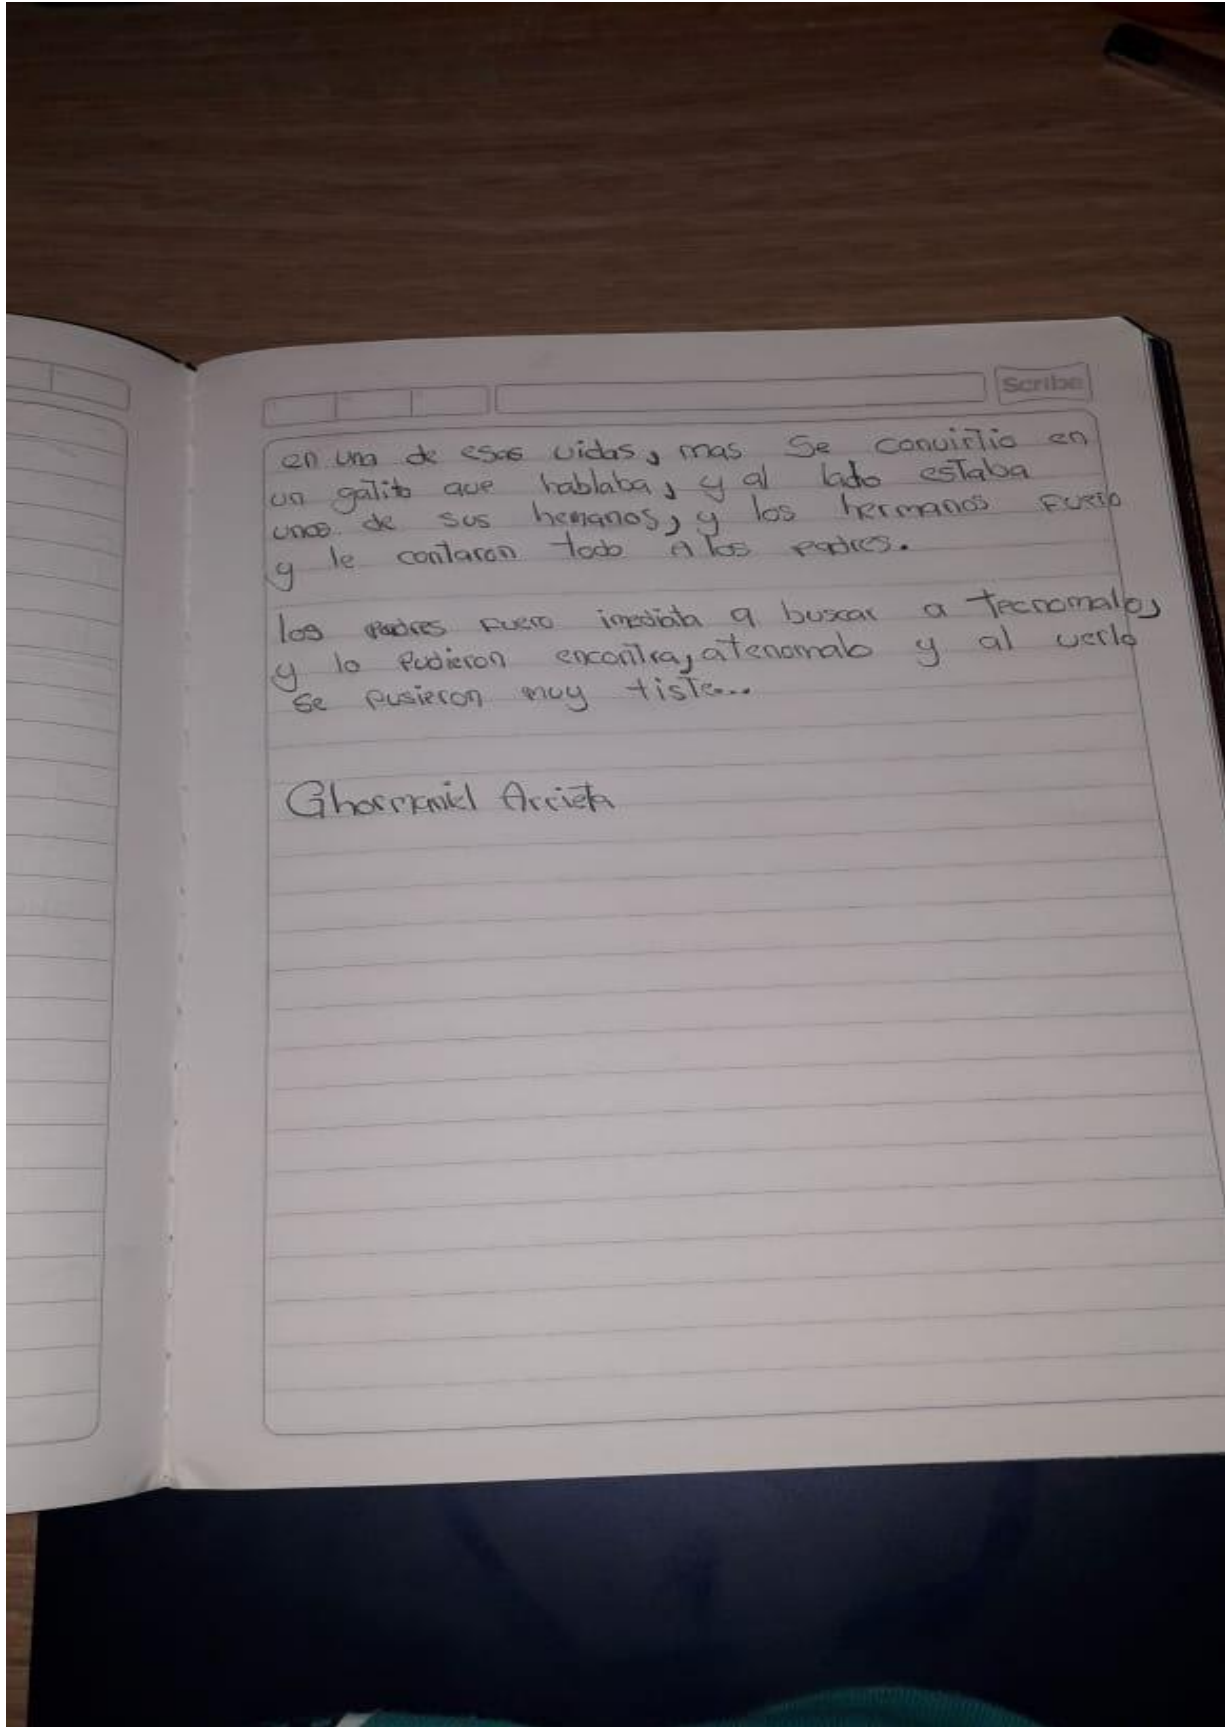 Scribe
en una de esas vidas, mas se convirtio en
un galito que hablaba, y al lado estaba
unos de sus hemanos, y los hermanos fuero
y le contaron todo A los padres.
los padres fuero imediata a buscar a tecnomalo,
y lo pudieron encontra, atenomalo y al verlo
se pusieron muy tiste...
Ghosmaniel Arrieta